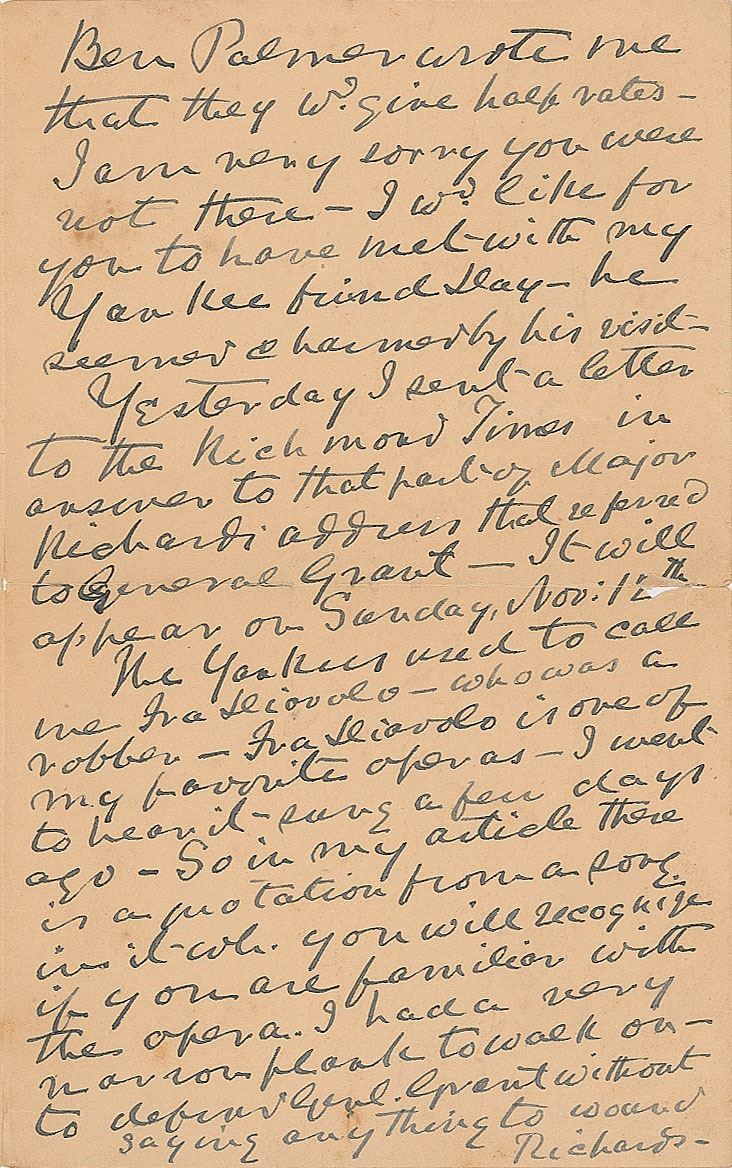 Ben Palmer wrote me
that they wd. give half rates -
I am very sorry you were
not there - I wd. like for
you to have met with my
Yankee friend Day - he
seemed charmed by his visit -
Yesterday I sent a letter
to the Richmond Times in
answer to that part of Major
Richards address that referred
to General Grant - It will
appear on Sunday, Nov: 12th
The Yankees used to call
me Fra Diavolo - who was a
robber - Fra Diavolo is one of
my favorite operas - I went
to hear it sung a few days
ago - So in my article there
is a quotation from a song
in it wh. you will recognize
if you are familiar with
the opera. I had a very
narrow plank to walk on -
to defend Genl. Grant without
saying anything to wound
Richards -